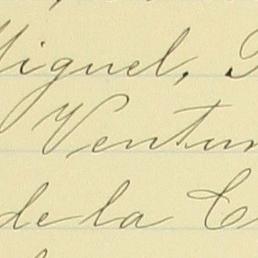 Miguel,
Ventur
de la C